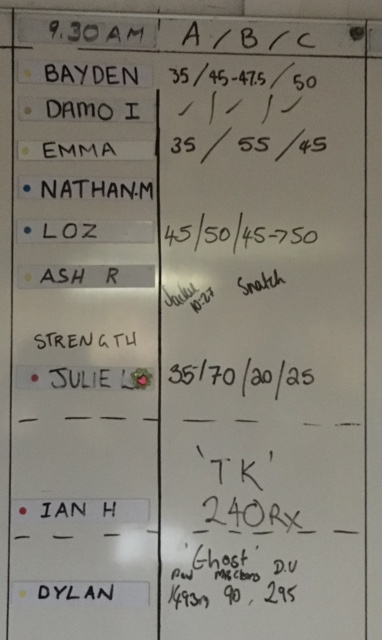 9.30 AM A / B / C
BAYDEN 35 / 45-47.5 / 50
DAMO I ✓ / ✓ / ✓
EMMA 35 / 55 / 45
NATHAN.M
LOZ 45/50/45→50
ASH R Snatch
10:27
STRENGTH
JULIE L 35/70/20/25
'TK'
IAN H 240RX
'Ghost'
Row D.U
DYLAN 1493m 90, 295